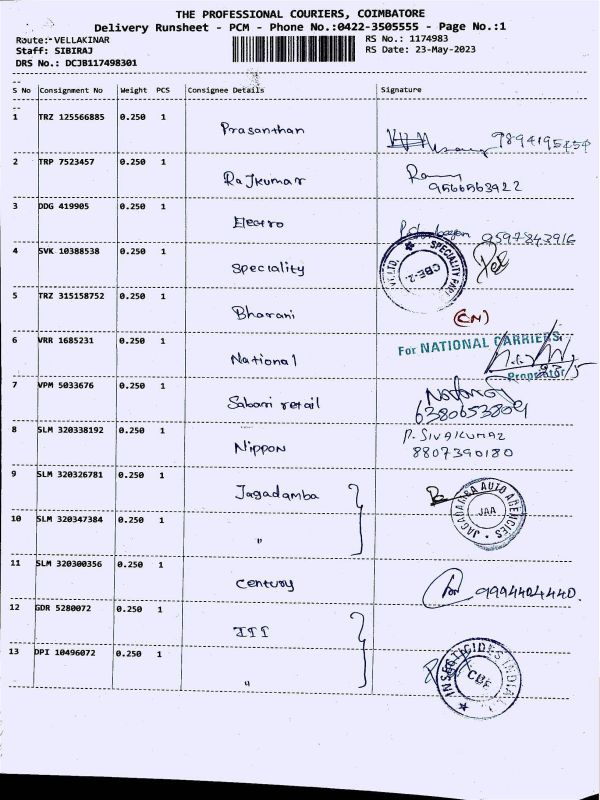 THE PROFESSIONAL COURIERS, COIMBATORE
Delivery Runsheet - PCM - Phone No.:0422-3505555 - Page No.:1
Route:-VELLAKINAR RS No.: 1174983
Staff: SIBIRAJ RS Date: 23-May-2023
DRS No.: DCJB117498301
S No Consignment No Weight PCS Consignee Details Signature
1 TRZ 125566885 0.250 1 Prasanthan
2 TRP 7523457 0.250 1 Rajkumar
9566563922
3 DDG 419905 0.250 1 Electro 9597843916
4 SVK 10388538 0.250 1 Speciality
CBE-2.
5 TRZ 315158752 0.250 1 Bharani (CN)
6 VRR 1685231 0.250 1 National For NATIONAL CARRIERS
Proprietor
7 VPM 5033676 0.250 1 Sabari retail
6380653809
8 SLM 320338192 0.250 1 Nippon P. SIVAKUMAR
8807390180
9 SLM 320326781 0.250 1 Jagadamba
JAGADAMBA AUTO AGENCIES
JAA
10 SLM 320347384 0.250 1 "
11 SLM 320300356 0.250 1 Century 9994404440.
12 GDR 5280072 0.250 1 III
13 DPI 10496072 0.250 1 "
INSECTICIDES INDIA
CBE